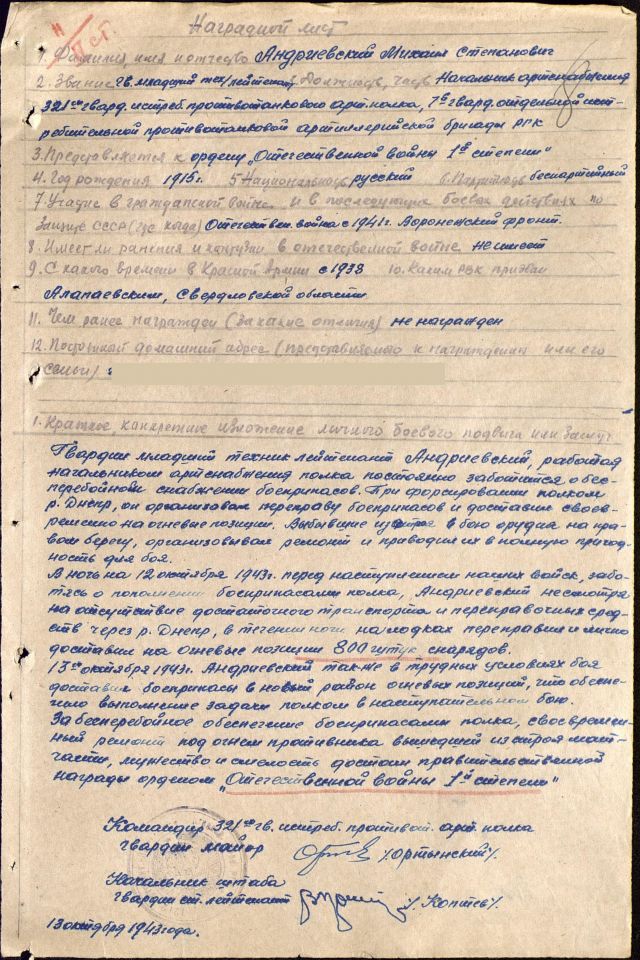 Наградной лист
1. Фамилия имя и отчество Андриевский Михаил Степанович
2. Звание гв. младший тех/лейтенант Должность, часть Начальник артснабжения
321го гвард. истреб. противотанкового арт. полка, 7й гвард. отдельной ист-
ребительной противотанковой артиллерийской бригады РГК
3. Представляется к ордену "Отечественной войны 1й степени"
4. Год рождения 1915 г. 5 Национальность русский 6. Партийность беспартийный
7 Участие в гражданской войне и в последующих боевых действиях по
защите СССР (где когда) Отечествен. война с 1941 г. Воронежский фронт.
8. Имеет ли ранения и контузии в отечественной войне не имеет
9. С какого времени в Красной Армии с 1938 10. Каким РВК призван
Алапаевским, Свердловской области
11. Чем ранее награжден (за какие отличия) не награжден
12. Постоянный домашний адрес (представляемого к награждению или его
семьи) :
1. Краткое, конкретное изложение личного боевого подвига или заслуг
Гвардии младший техник лейтенант Андриевский, работая
начальником артснабжения полка постоянно заботился о бес-
перебойном снабжении боеприпасов. При форсировании полком
р. Днепр, он организовал переправу боеприпасов и доставил свое-
ременно на огневые позиции. Выбывшие из строя в бою орудия на пра-
вом берегу, организовывал ремонт и приводил их в полную пригод-
ность для боя.
В ночь на 12 октября 1943 г. перед наступлением наших войск, забо-
тясь о пополнении боеприпасами полка, Андриевский несмотря
на отсутствие достаточного транспорта и переправочных сред-
ств через р. Днепр, в течении ночи на лодках переправил и лично
доставил на огневые позиции 800 штук снарядов.
13го октября 1943 г. Андриевский так-же в трудных условиях боя
доставил боеприпасы в новый район огневых позиций, что обеспе-
чило выполнение задачи полком в наступательном бою.
За бесперебойное обеспечение боеприпасами полка, своевремен-
ный ремонт под огнем противника вышедшей из строя мат-
части, мужество и смелость достоин правительственной
награды орденом "Отечественной войны 1й степени"
Командир 321го гв. истреб. противот. арт. полка
гвардии майор /Ортынский/.
Начальник штаба
гвардии ст. лейтенант /Коптев/.
13 октября 1943 года.